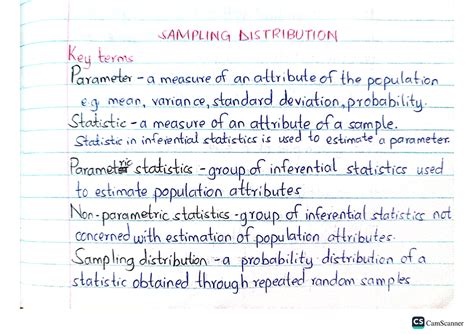 SAMPLING DISTRIBUTION
Key terms
Parameter - a measure of an attribute of the population
e.g mean, variance, standard deviation, probability.
Statistic - a measure of an attribute of a sample.
Statistic in inferential statistics is used to estimate a parameter.
Parametric statistics - group of inferential statistics used
to estimate population attributes
Non-parametric statistics - group of inferential statistics not
concerned with estimation of population attributes.
Sampling distribution - a probability distribution of a
statistic obtained through repeated random samples
CS CamScanner